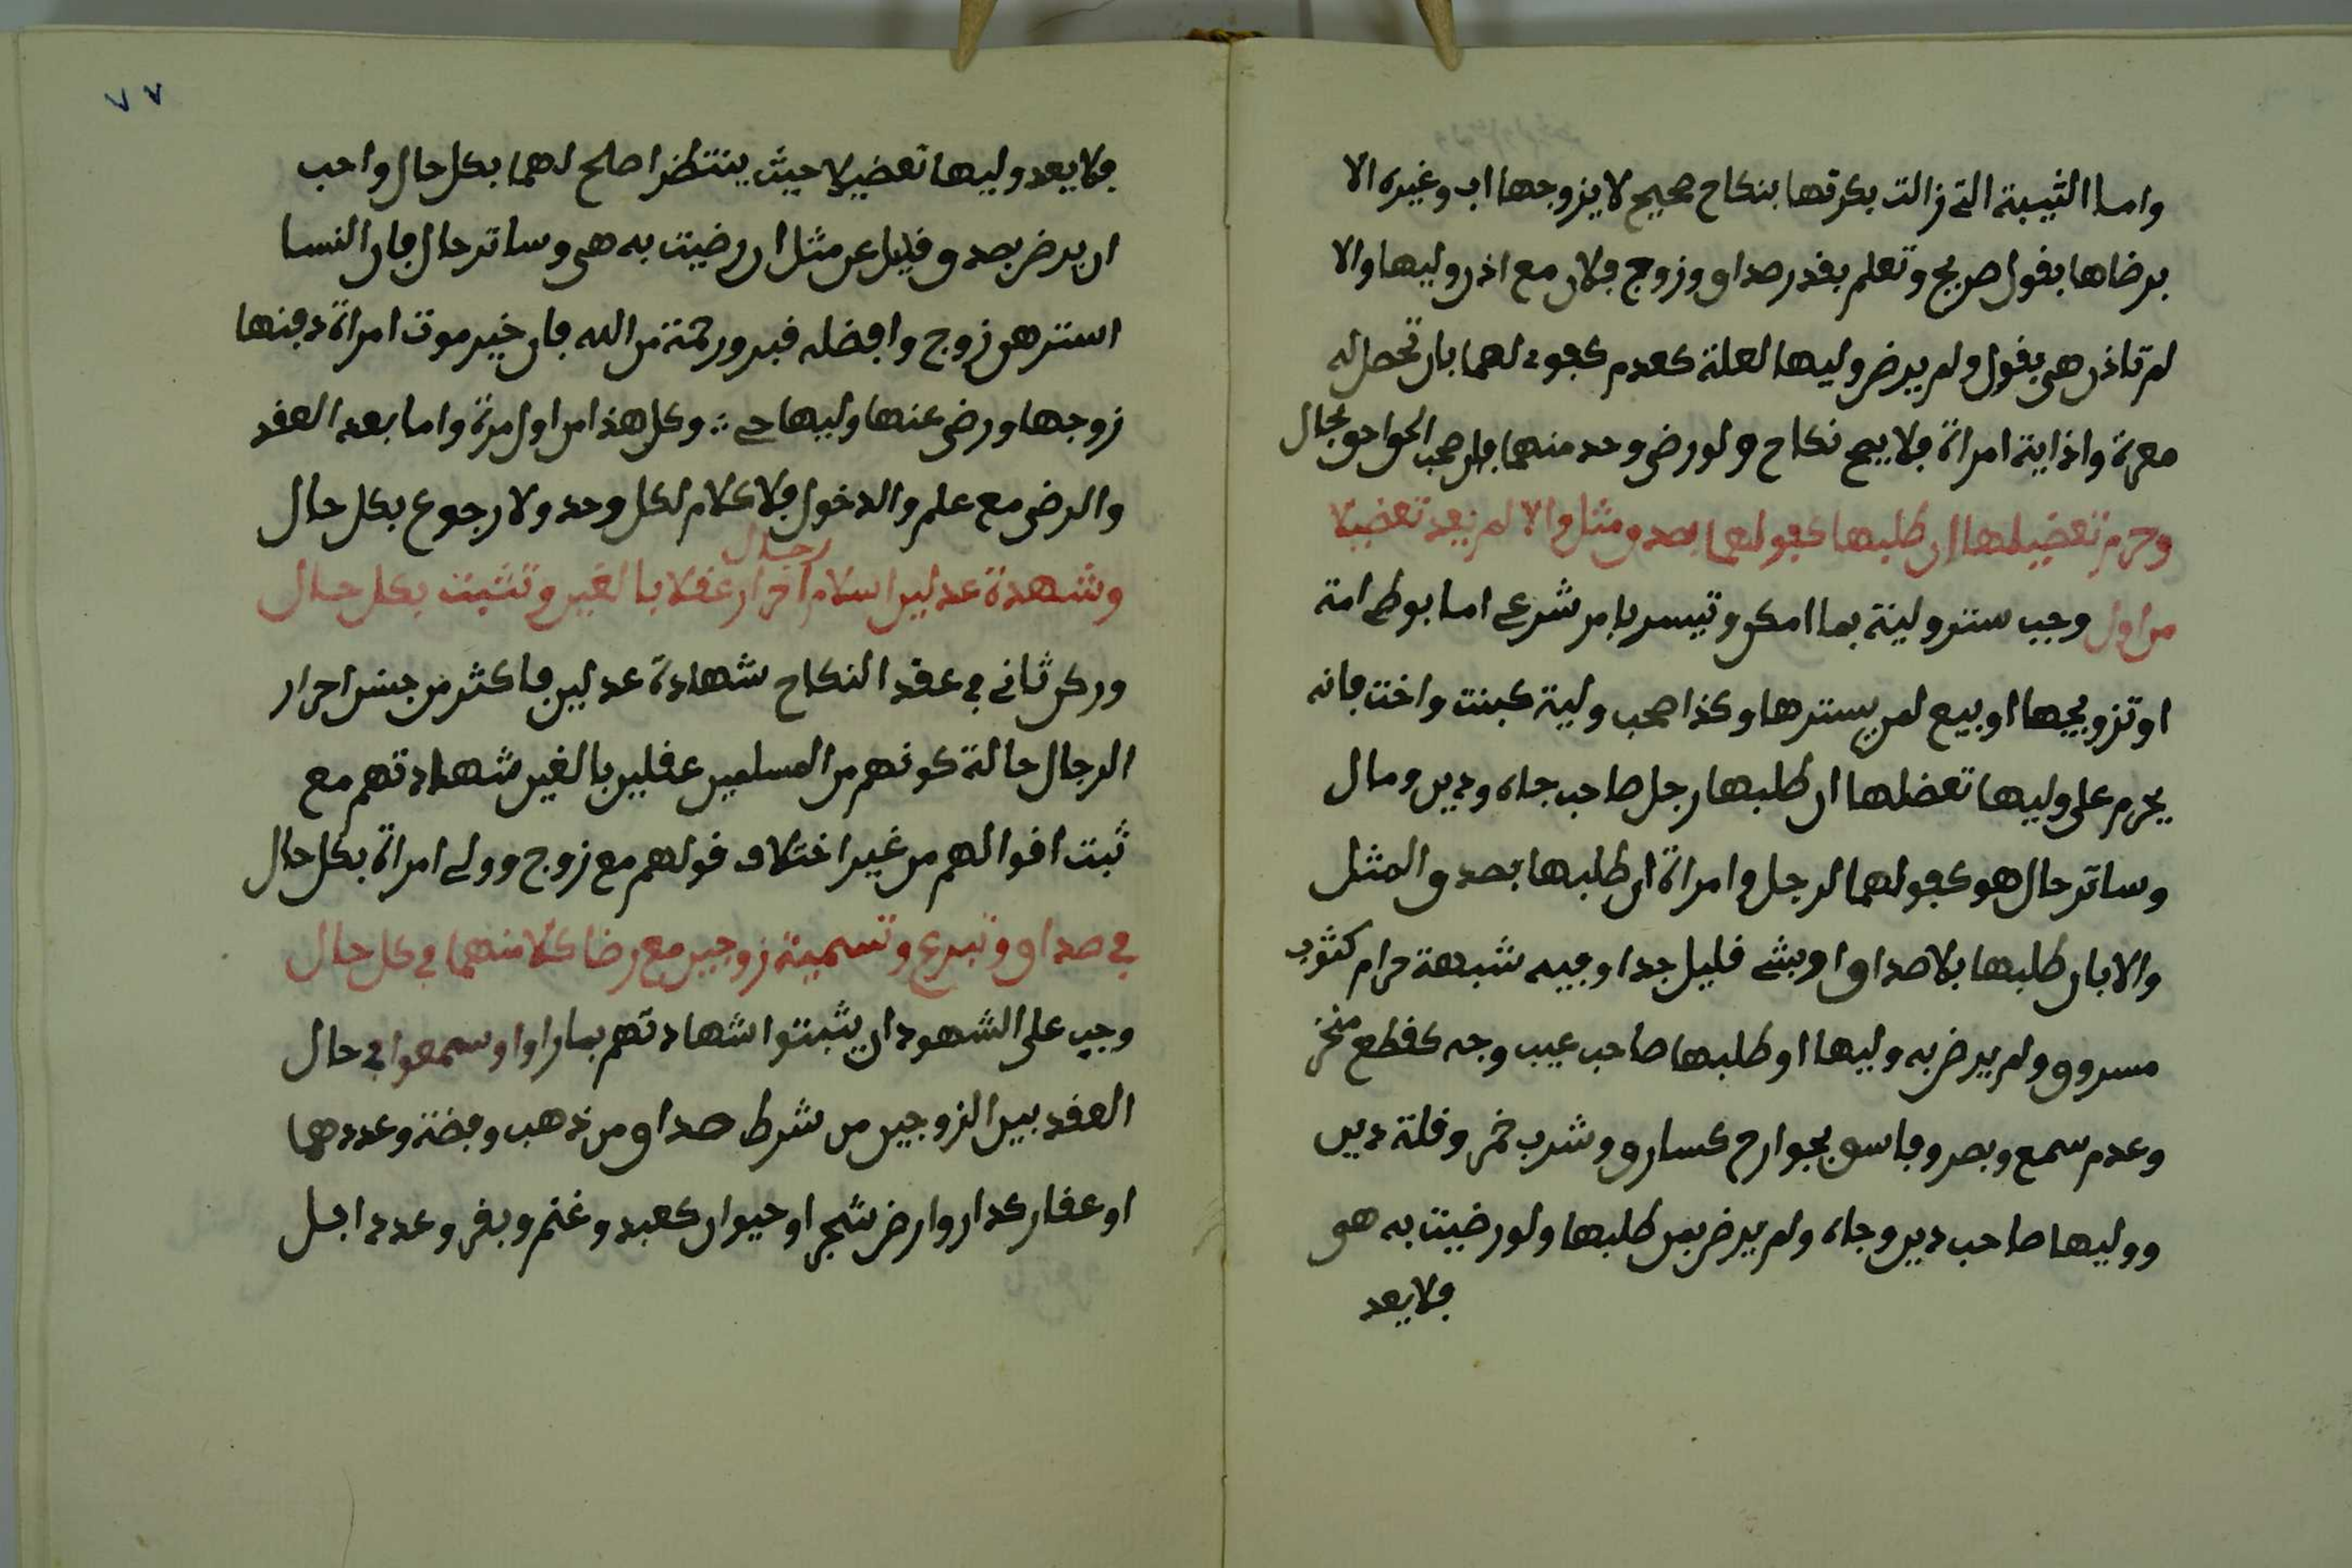 واما الثيبة التي زالت بكرتها بنكاح صحيح لا يزوجها اب وغيره الا
برضاها بقول صريح وتعلم بقدر صداق وزوج فلان مع اذن وليها والا
لم تاذن هي بقول ولم يرض وليها لعلة كعدم كفوء لهما بان تحصل له
معرة واذاية امراة فلا يصح نكاح ولو رضي وحد منهما فان صحب الحق احق بحال
وحرم تعضيلها ان طلبها كفو لهما بصدق مثل والا لم يعد تعضيلا
من اول وجب ستر ولية بما امكن وتيسر بامر شرعي اما بوطي امة
او تزويجها او بيع لمن يسترها وكذا صحب ولية كبنت واخت فانه
يحرم على وليها تعضلها ان طلبها رجل صاحب جاه ودين ومال
وساتر حال هو كفو لهما الرجل وامراة ان طلبها بصدق المثل
والا بان طلبها بلا صداق او بشي قليل جدا او فيه شبهة حرام كثوب
مسروق ولم يرض به وليها او طلبها صاحب عيب وجه كقطع منخر
وعدم سمع وبصر وفاسق بجوارح كسارق وشرب خمر وقلة دين
ووليها صاحب دين وجاه ولم يرض بمن طلبها ولو رضيت به هي
فلا يعد
٧٧
فلا يعد وليها تعضيلا حيث ينتظر اصلح لهما بكل حال واحب
ان يرض بصدق قليل عن مثل ان رضيت به هي وساتر حال فان النسا
استرهن زوج وافضله قبر ورحمة من الله فان خير موت امراة دفنها
زوجها ورضي عنها وليها حي وكل هذا من اول مرة واما بعد العقد
والرضى مع علم والدخول فلا كلام لكل وحد ولا رجوع بكل حال
رجال
وشهدة عدلين اسلام احرار عقلا بالغين وتثبت بكل حال
وركن ثاني في عقد النكاح شهادة عدلين فاكثر من جنس احرار
الرجال حالة كونهم من المسلمين عقلين بالغين شهادتهم مع
ثبت اقوالهم من غير اختلاف قولهم مع زوج وولي امراة بكل حال
في صداق وتبرع وتسمية زوجين مع رضا كلا منهما في كل حال
وجب على الشهود ان يثبتوا شهادتهم بما راوا وسمعوا في حال
العقد بين الزوجين من شرط صداق من ذهب وفضة وعددهما
او عقار كدار وارض شجر او حيوان كعبد وغنم وبقر وعدد اجل